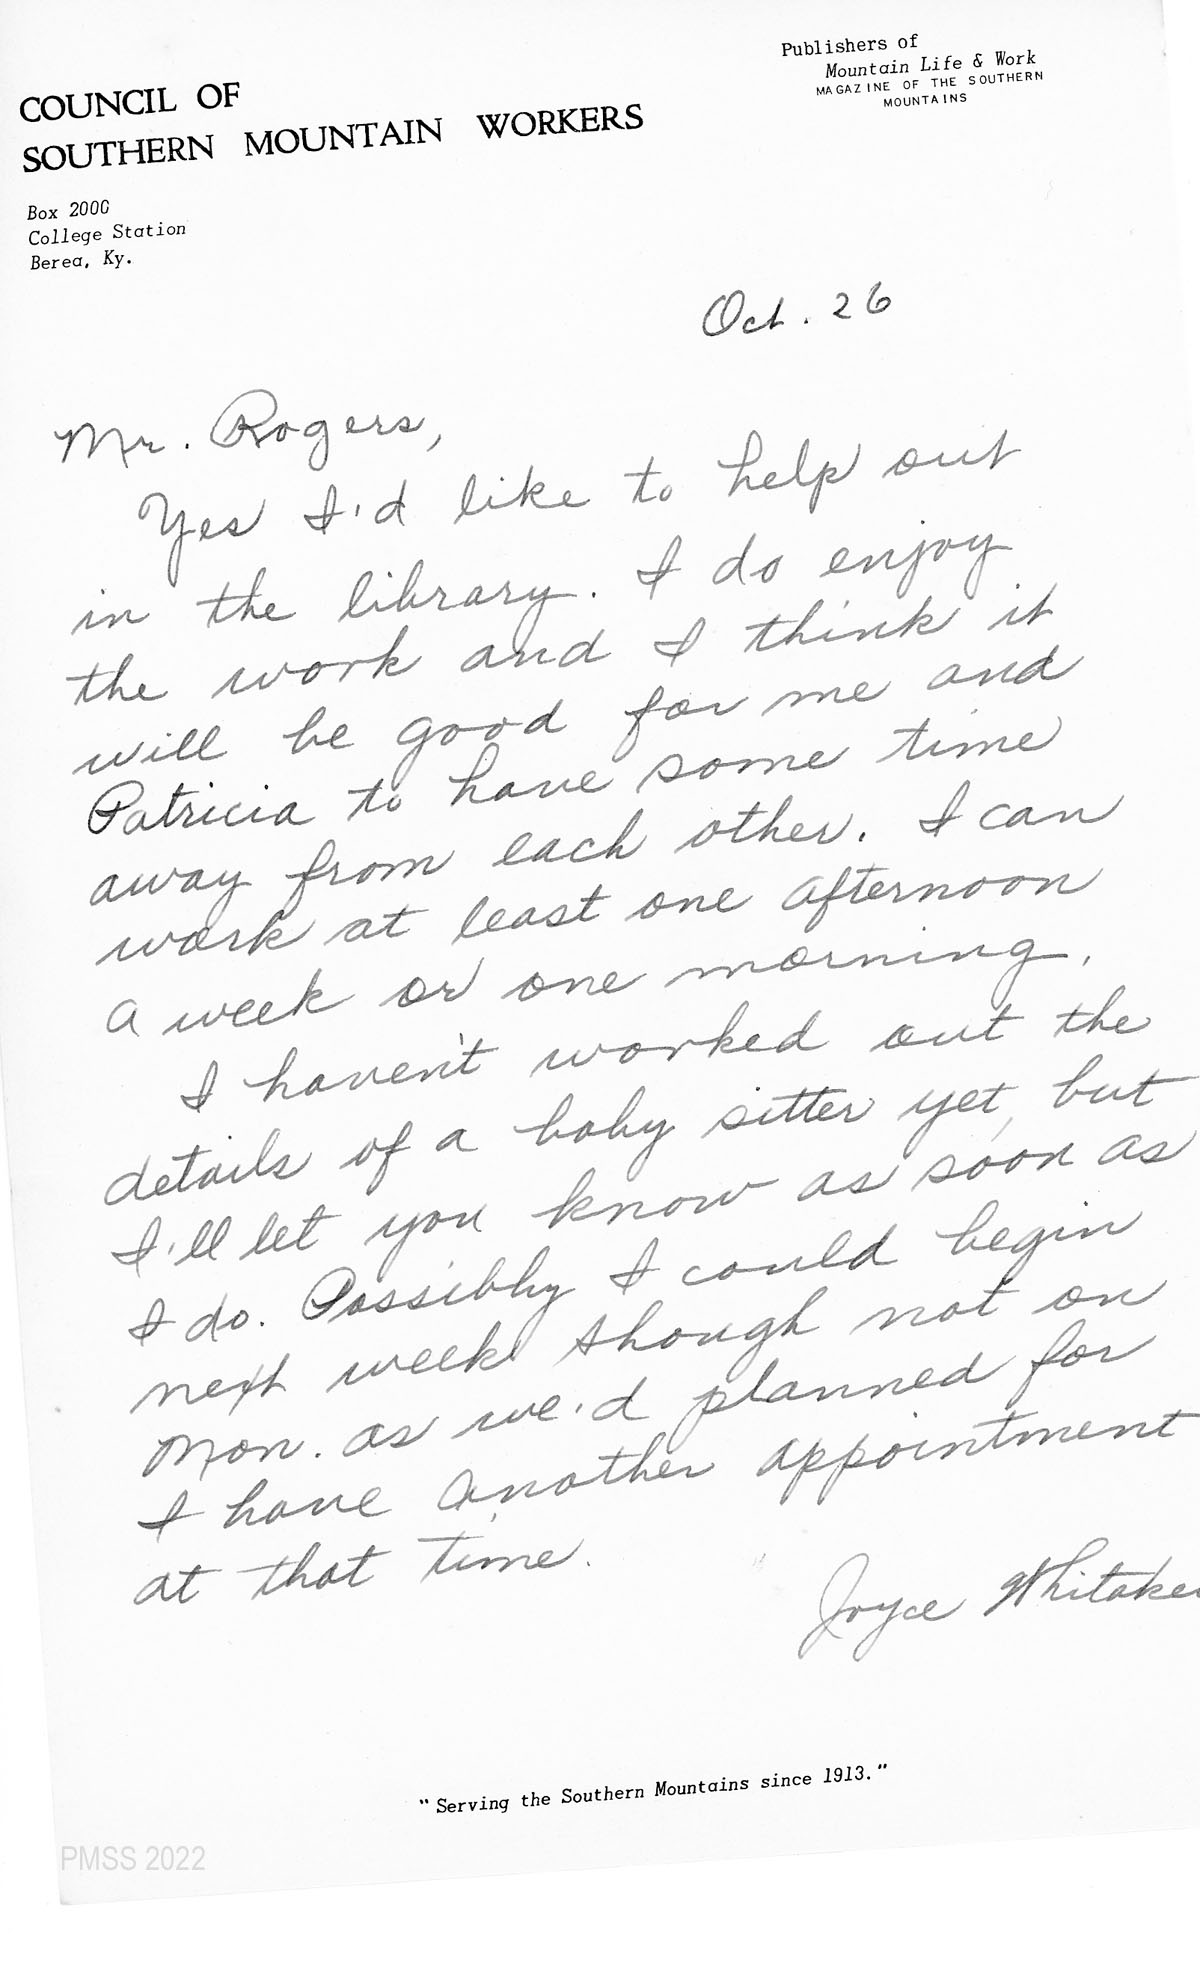 Publishers of
Mountain Life & Work
MAGAZINE OF THE SOUTHERN
MOUNTAINS
COUNCIL OF
SOUTHERN MOUNTAIN WORKERS
Box 2000
College Station
Berea, Ky.
Oct. 26
Mr. Rogers,
Yes I'd like to help out
in the library. I do enjoy
the work and I think it
will be good for me and
Patricia to have some time
away from each other. I can
work at least one afternoon
a week or one morning.
I haven't worked out the
details of a baby sitter yet, but
I'll let you know as soon as
I do. Possibly I could begin
next week though not on
Mon. as we'd planned for
I have another appointment
at that time.
Joyce Whitaker
"Serving the Southern Mountains since 1913."
PMSS 2022